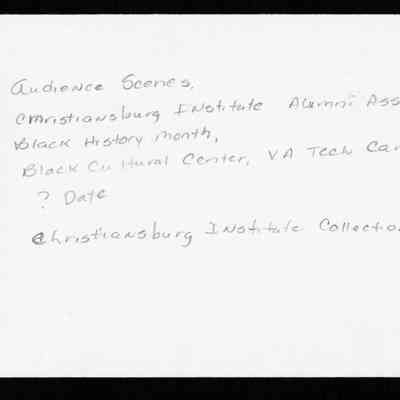 Audience Scenes,
Christiansburg Institute Alumni Ass
Black History Month,
Black Cultural Center, VA Tech Cam
? Date
Christiansburg Institute Collectio